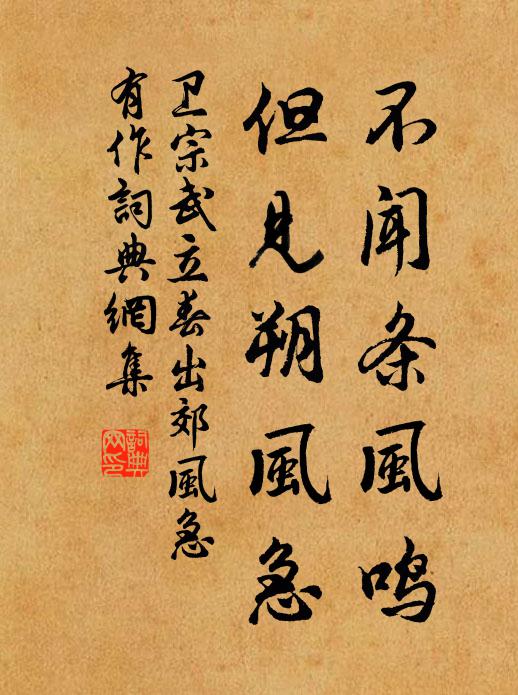 不闻条風鸣
但見朔風急
卫宗武立春出郊風急
有作詞典網集
詞典
网印